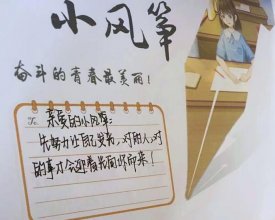 小风筝
奋斗的青春最美丽！
To 亲爱的小风筝：
先努力让自己发光，对的人，对
的事才会迎着光而你而来！